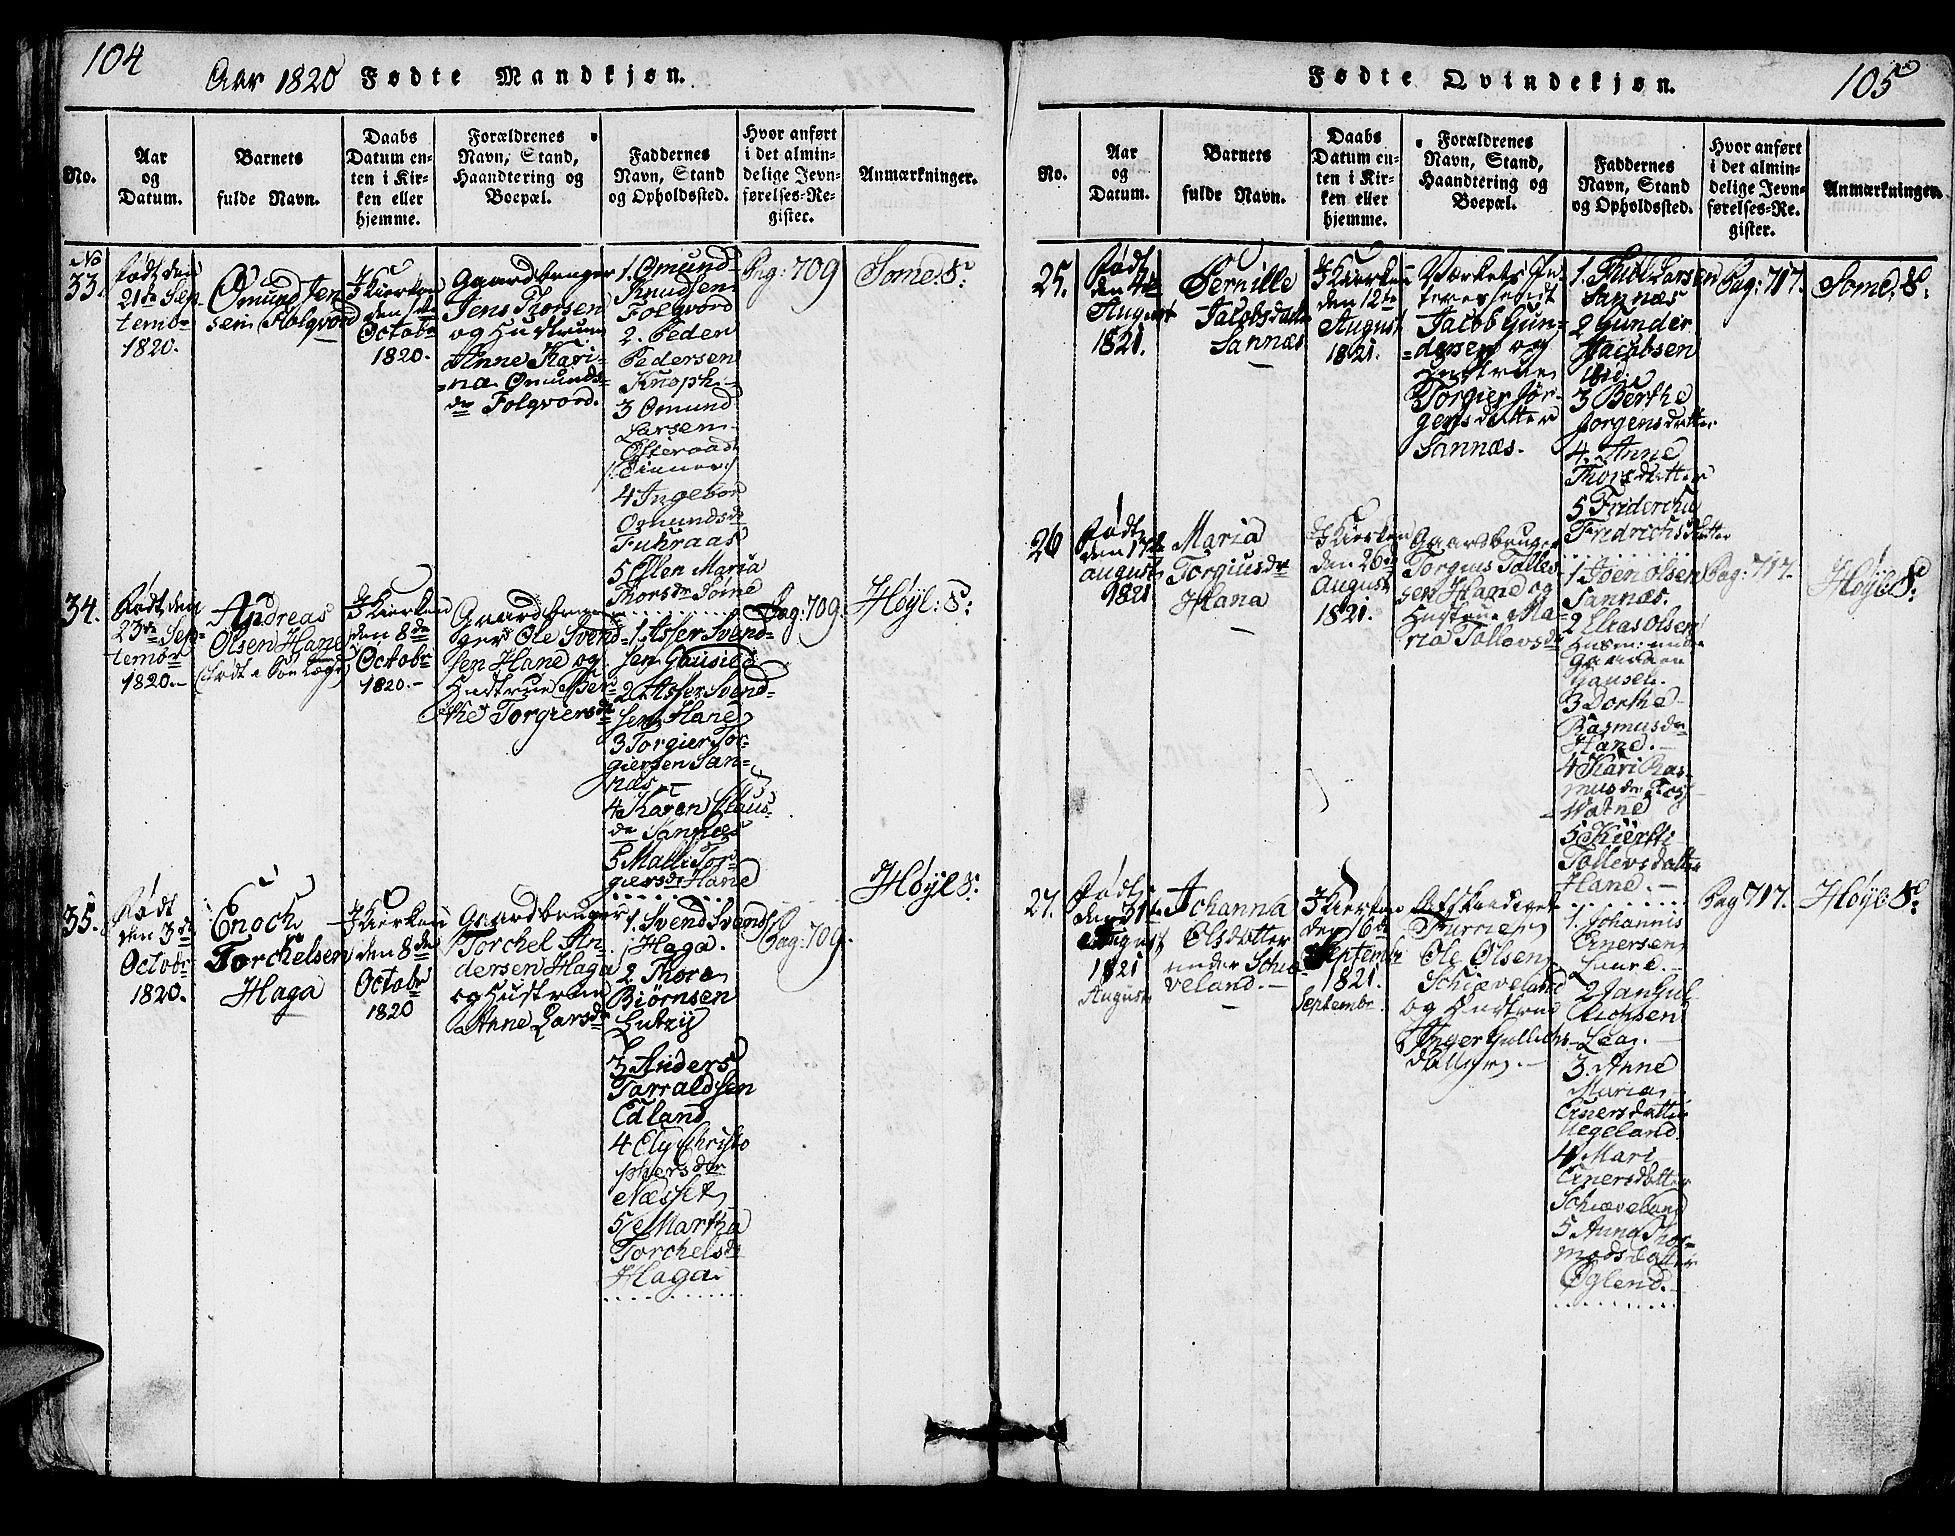 104
Aar 1820 Fødte Mandkjøn.
No.
Aar
og
Datum.
Barnets
fulde Navn.
Daabs
Datum en-
ten i Kir-
ken eller
hjemme.
Forældrenes
Navn, Stand,
Haandtering og
Boepæl.
Faddernes
Navn, Stand
og Opholdssted.
Hvor anført
i det almin-
delige Jevn-
førelses-Re-
gister.
Anmærkninger.
No
33.
født den
21de Sep-
tembr
1820.
Omund Jen
sen Folqvord
I Kierken
den 1ste
Octobr
1820.
Gaardbruger
Jens Thorsen
og Hustrue
Anne Kari-
na Omunds-
dr Folqvord.
1. Omund
Knudsen
Folqvord
2. Peder
Pedersen
Knoph
3 Omund
Larsen
4 Ingebor
Omundsdr
Fuhraas
5 Ellen Maria
Thorsdr Sømme
Pag: 709
Some: S:
34.
Født den
23de Sep-
tembr
1820.
Andreas
Olsen Hane
I Kierken
den 8de
Octobr
1820.
Gaardbru-
ger Ole Svend-
sen Hane og
Hustrue Ber-
the Torgiersdr
1 Asser Svend-
sen Gausel
2 Asser Svend-
sen Hane
3 Torgier Tor-
giersen San-
næs
4 Karen Klaus-
dr Sannæs
5 Malli Tor-
giersdr Hane
Pag: 709.
Høyl: S:
35.
Født
den 3de
Octobr
1820.
Enoch
Torchelsen
Haga
I Kierken
den 8de
Octobr
1820
Gaardbruger
Torchel An-
dersen Haga
og Hustrue
Anne Larsdr
1. Svend Svends
Haga.
2 Thore
Biørnsen
Lutzy
3 Anders
Tarraldsen
Edland
4 Ely Christo
phersdr
Næsset
5 Martha
Torchelsdr
Haga.
Pag: 709.
Høyl S:
105
Fødte Qvindekjøn.
No.
Aar
og
Datum.
Barnets
fulde Navn.
Daabs
Datum en-
ten i Kir-
ken eller
hjemme.
Forældrenes
Navn, Stand,
Haandtering og
Boepæl.
Faddernes
Navn, Stand
og Opholdssted.
Hvor anført
i det almin-
delige Jevn-
førelses-Re-
gister.
Anmærkninger.
25.
Født
den 4de
August
1821.
Pernille
Jacobsdatter
Sannæs
I Kierken
den 12te
August
1821.
Værkets In-
teressendt
Jacob Gun-
dersen og
Hustrue
Torgier Jør-
gensdatter
Sannæs.
1 Larsen
Sannæs
2 Gunder
Jacobsen
ibid.
3 Berthe
Jorgensdatter
4. Anne
Thorsdatter
5 Friderche
Fredrichsdatter
Pag: 717.
Some: S:
26
Født
den 17de
August
1821
Maria
Torgiusdr
Hana
I Kierken
den 26de
August
1821.
Gaardbruger
Torgius Tolles-
sen Hane og
Hustrue Ma-
ria Tollevsdr
1 Joen Olsen
Sannæs.
2 Elias Olsen
Gausel.
3 Dorthe
Rasmusdr
Hane.
4 Kari Ras-
musdr Fos
Watne
5 Kiersti
Tollevsdatter
Hane.
Pag: 717.
Høyl S:
27.
Født
den 31te
August
1821
August
Johanna
Olsdatter
under Schie-
veland.
I Kierken
den 16de
Septembr
1821.
Septembr
Ole Olsen
Schiæveland
og Hustrue
Inger Gullichs-
datter.
1. Johannis
Enersen
Laure.
2 Jan Gul-
lichsen
Lea.
3. Anne
Maria
Enersdatter
Hegeland
4 Mari
Enersdatter
Schiæveland
5 Anna Thor-
modsdatter
Øglend.
Pag 717.
Høyl: S: